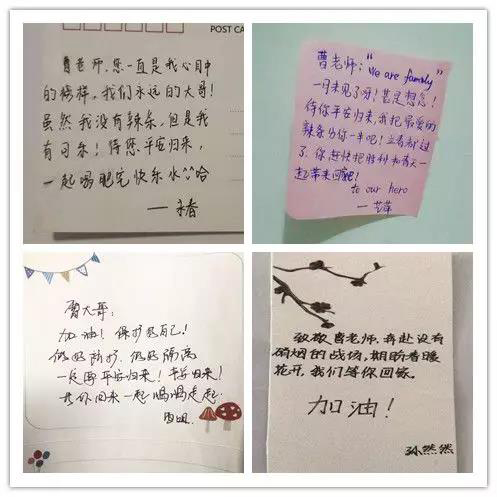 POST CA
曹老师,您一直是我心目中
的榜样,我们永远的大哥!
虽然我没有辣条,但是我
有可乐!待您平安归来,
一起喝肥宅快乐水^^哈
曹老师:"We are family"
一月未见了呀!甚是想念!
待你平安归来,我把最爱的
辣条分你一半吧!立春都过
了,你赶快把胜利和春天一
起带来回吧!
to our hero
曹大哥:
加油!保护好自己!
做好防护,做好隔离
一定要平安归来!
等你回来一起嗨嗨走起
致敬曹老师,奔赴没有
硝烟的战场,期盼春暖
花开,我们等你回家.
加油!
孙然然